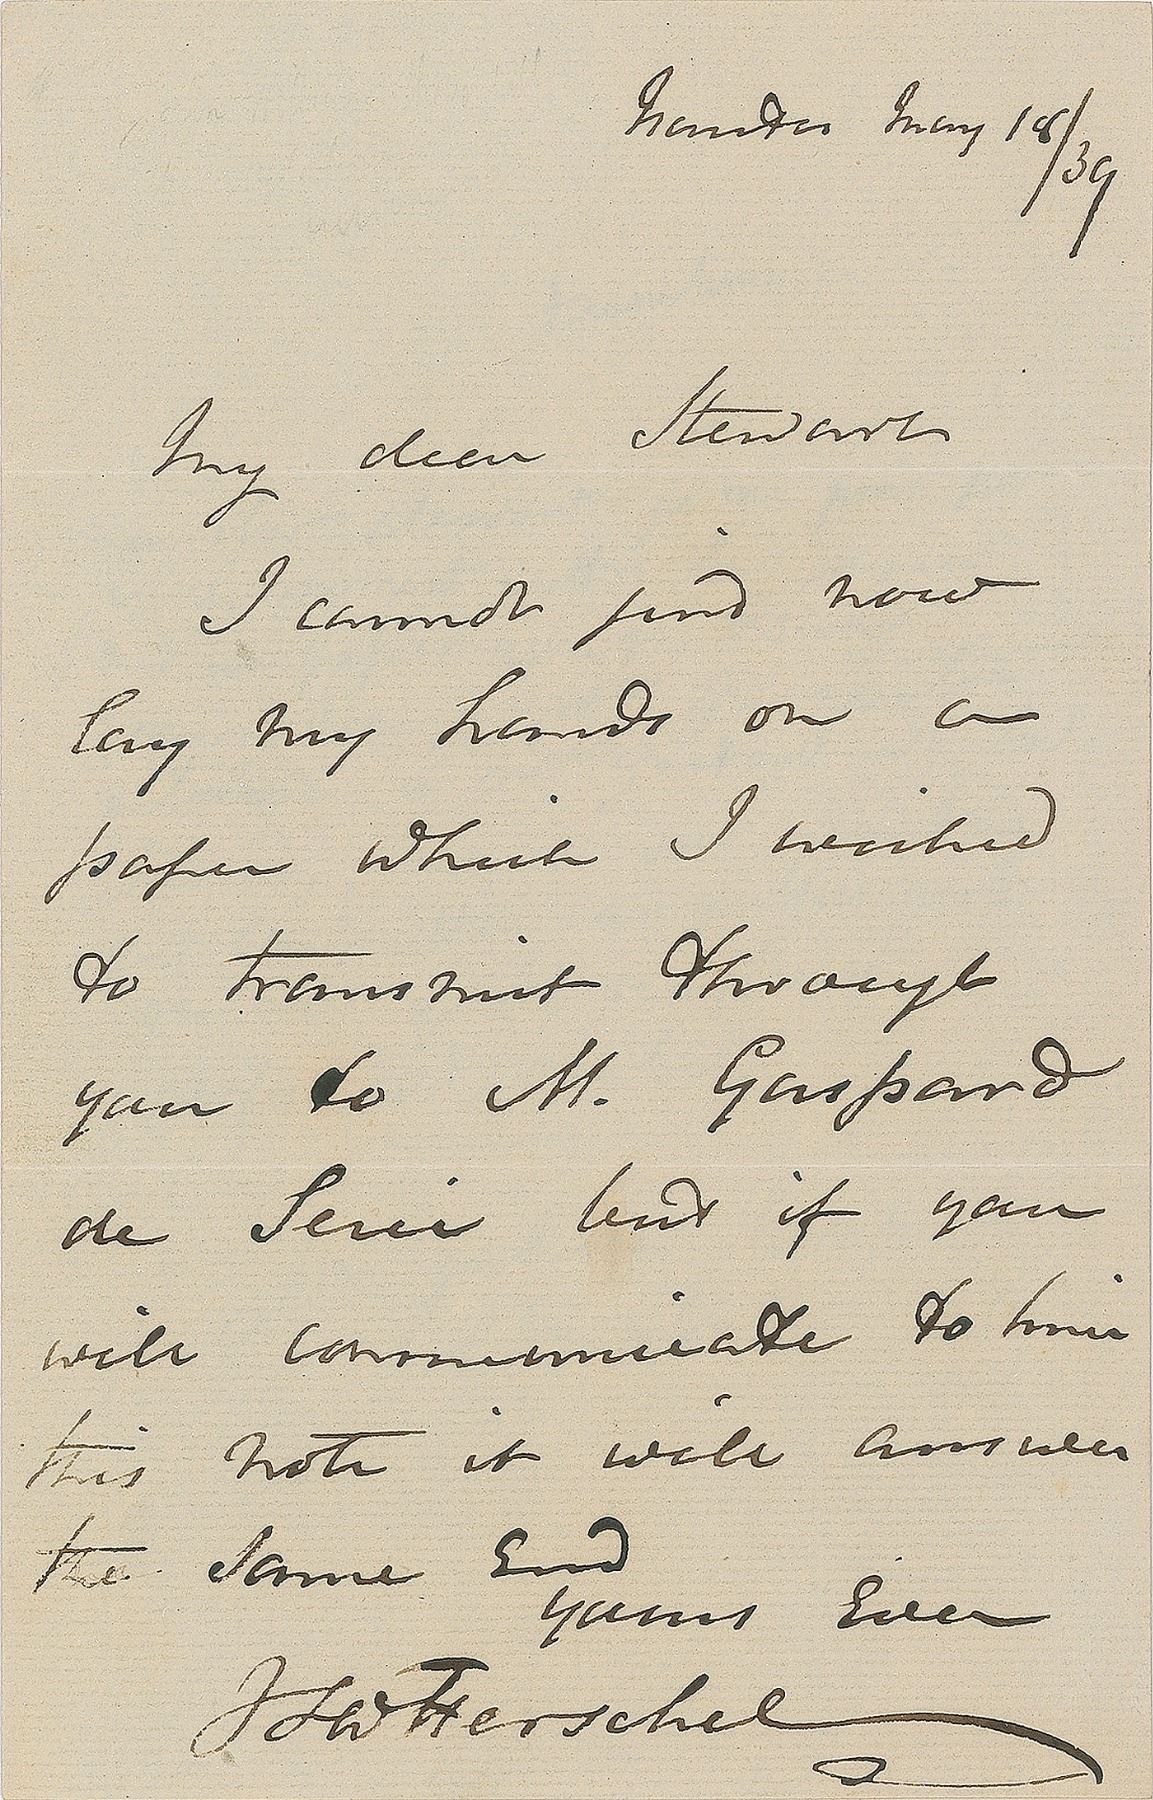 May 18/39
My dear Stewart
I cannot find now
lay my hands on a
paper which I wished
to transmit through
you to M. Gaspard
de but if you
will communicate to him
this note it will answer
the same End
yours Ever
JFW Herschel